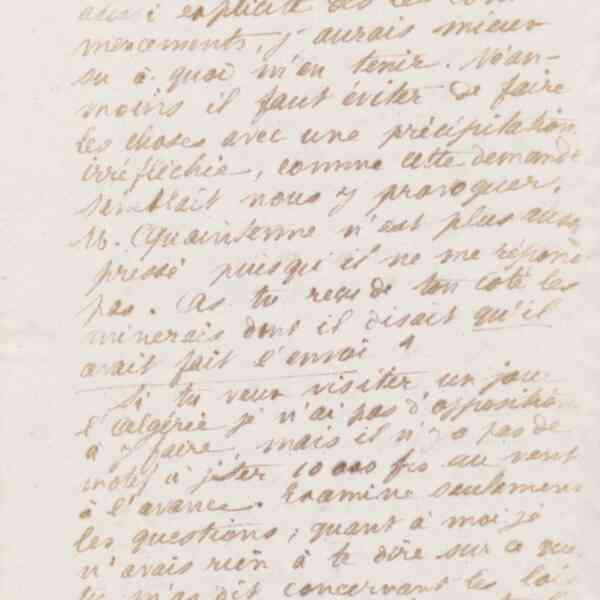 aussi explicite dès les com
mencements, j'aurais mieux
su à quoi m'en tenir. Néan-
moins il faut éviter de faire
les choses avec une précipitation
irréfléchie, comme cette demande
semblait nous y provoquer.
M. n'est plus aussi
pressé puisqu'il ne me répond
pas. As tu reçu de ton côté les
minerais dont il disait qu'il
avait fait l'envoi ?
Si tu veux visiter un jour
l'Algérie je n'ai pas d'opposition
à y faire, mais il n'y a pas de
motif à jeter 10 000 frs au vent
à l'avance. Examine seulement
les questions; quant à moi je
n'avais rien à te dire sur ce que
tu m'as dit concernant les lois